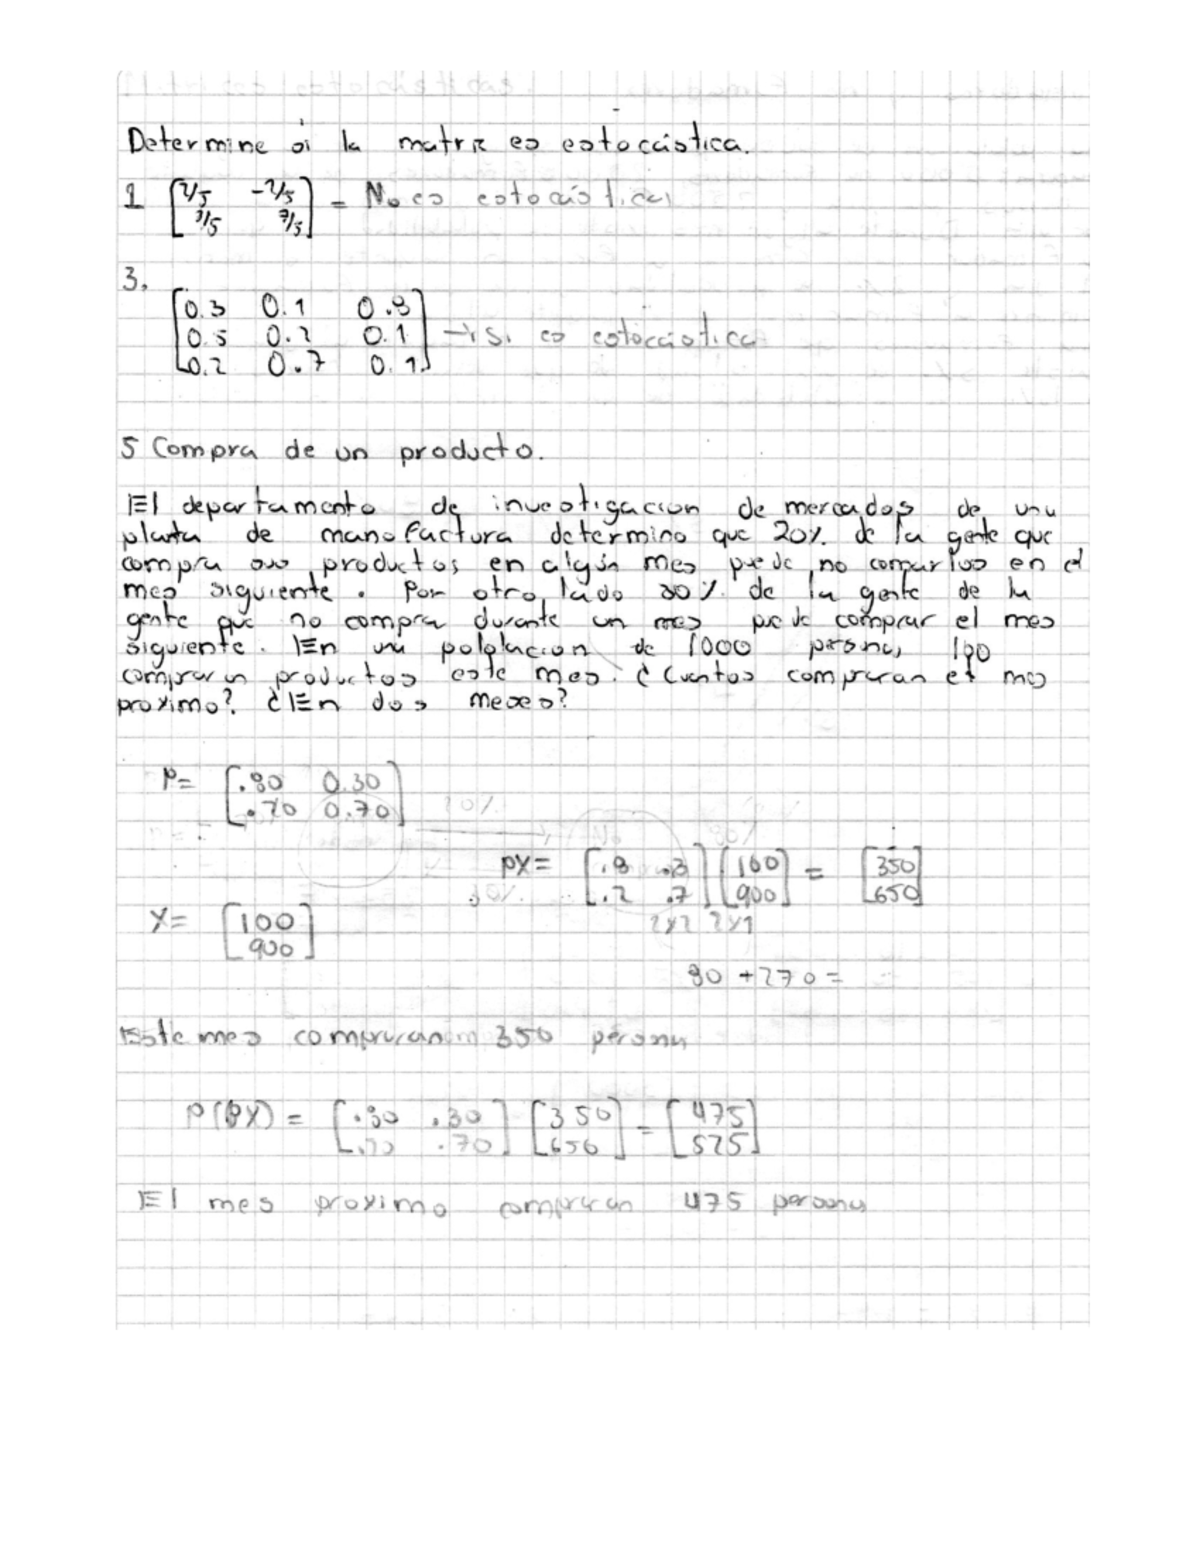 Determine si la matriz es estocástica.
1 [2/5 -2/5] = No es estocástica
[3/5 7/5]
3.
[0.3 0.1 0.8]
[0.5 0.2 0.1] → Si es estocástica
[0.2 0.7 0.1]
5 Compra de un producto.
El departamento de investigacion de mercados de una
planta de manofactura determino que 20% de la gente que
compra sus productos en algún mes puede no comprarlos en el
mes siguiente. Por otro lado 30% de la gente de la
gente que no compra durante un mes puede comprar el mes
siguiente. En una poblacion de 1000 personas 100
compraran productos este mes. ¿Cuantos compraran el mes
proximo? ¿En dos meses?
P= [.80 0.30]
[.20 0.70] 20%
PX= [.8 .3] [100] = [350]
[.2 .7] [900] [650]
X= [100] 2x2 2x1
[900]
80 + 270 =
Este mes compraran 350 persona
P(PX) = [.80 .30] [350] = [475]
[.20 .70] [650] [525]
El mes proximo compraran 475 personas